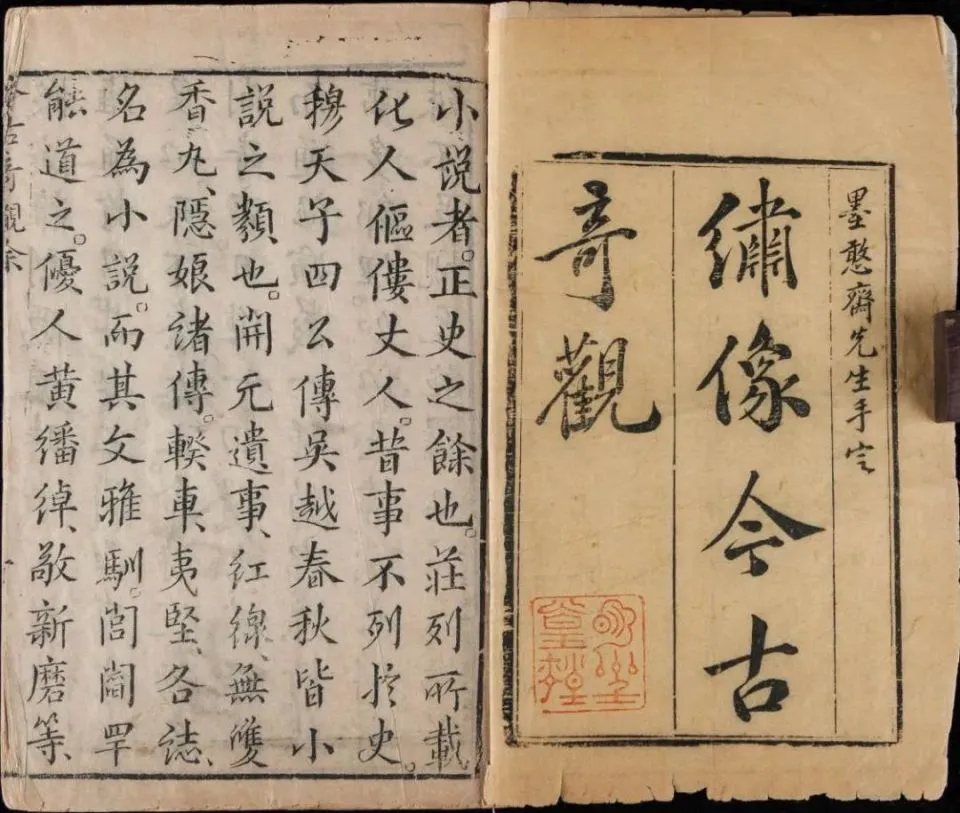 墨憨齋先生手定
繡像今古
竒觀
小說者。正史之餘也。莊列所載
化人傴僂丈人。昔事不列於史。
穆天子四公傳吳越春秋皆小
說之類也。開元遺事、紅線、無雙
香丸、隱娘諸傳。睽車、夷堅、各誌、
名為小說。而其文雅馴。閭閻罕
能道之。優人黃繙綽、敬新磨等、
今古竒觀